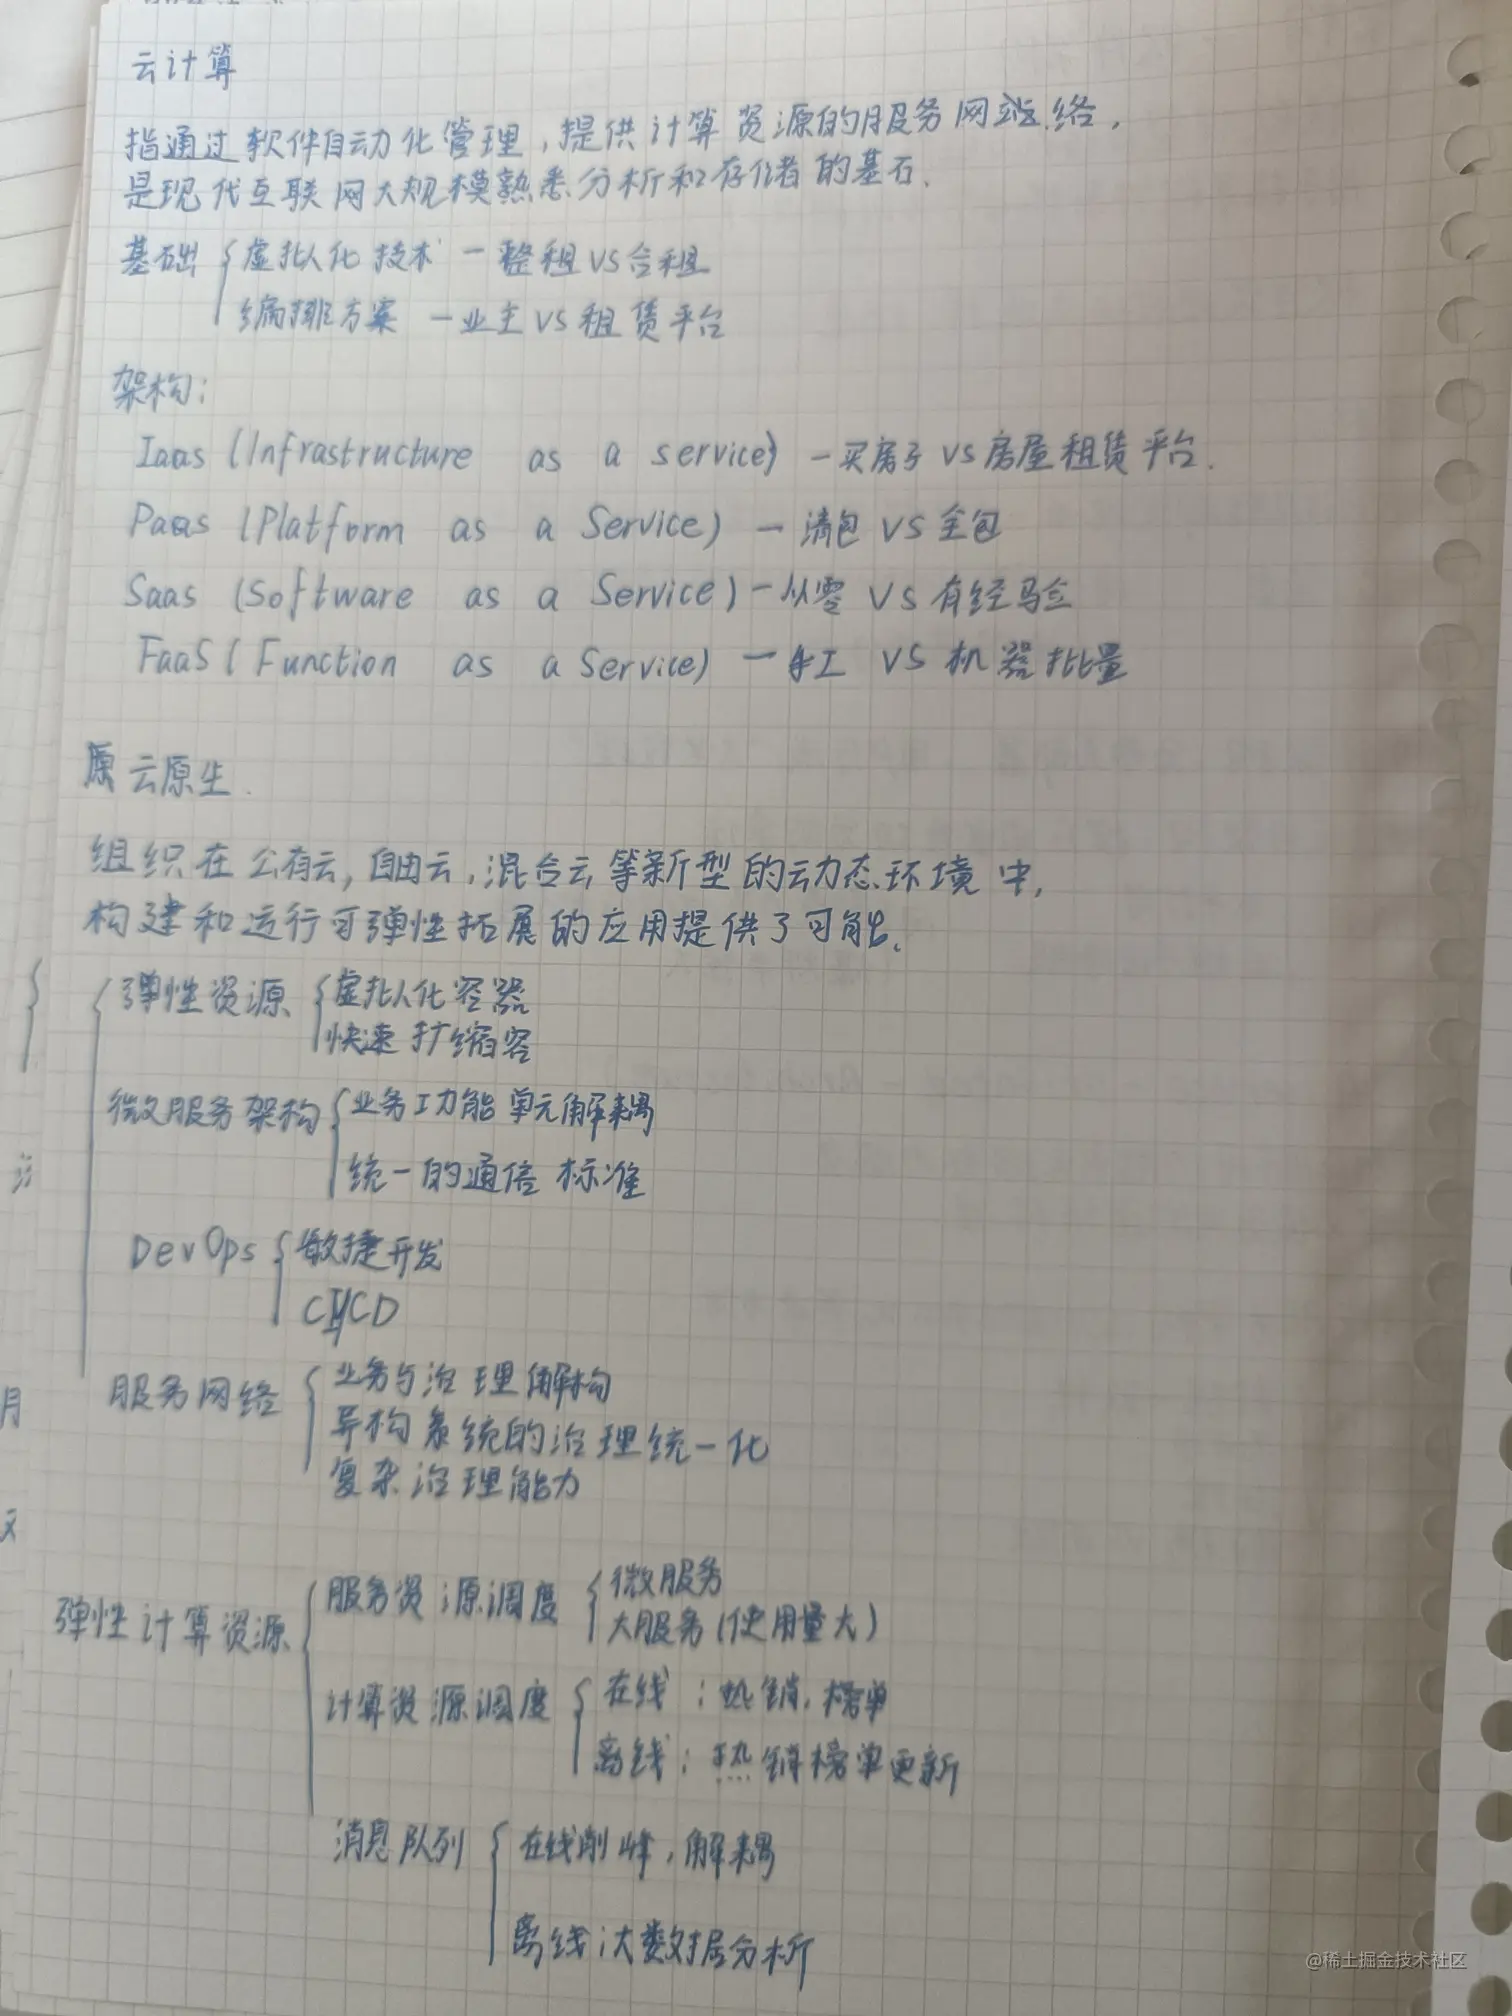 云计算
指通过软件自动化管理，提供计算资源的服务网络，
是现代互联网大规模熟悉分析和存储的基石.
基础 { 虚拟化技术 — 整租 VS 合租
编排方案 — 业主 VS 租赁平台
架构:
Iaas (Infrastructure as a service) — 买房子 VS 房屋租赁平台.
Paas (Platform as a Service) — 清包 VS 全包
Saas (Software as a Service) — 从零 VS 有经验
FaaS (Function as a Service) — 手工 VS 机器批量
原云原生.
组织在公有云, 自由云, 混合云等新型的云动态环境中,
构建和运行可弹性拓展的应用提供了可能.
弹性资源 { 虚拟化容器
快速扩缩容
微服务架构 { 业务功能单元解耦
统一的通信标准
DevOps { 敏捷开发
CI/CD
服务网络 { 业务与治理解构
异构系统的治理统一化
复杂治理能力
弹性计算资源 { 服务资源调度 { 微服务
大服务(使用量大)
计算资源调度 { 在线: 热销, 榜单
离线: 热销榜单更新
消息队列 { 在线削峰, 解耦
离线: 大数据分析
@稀土掘金技术社区